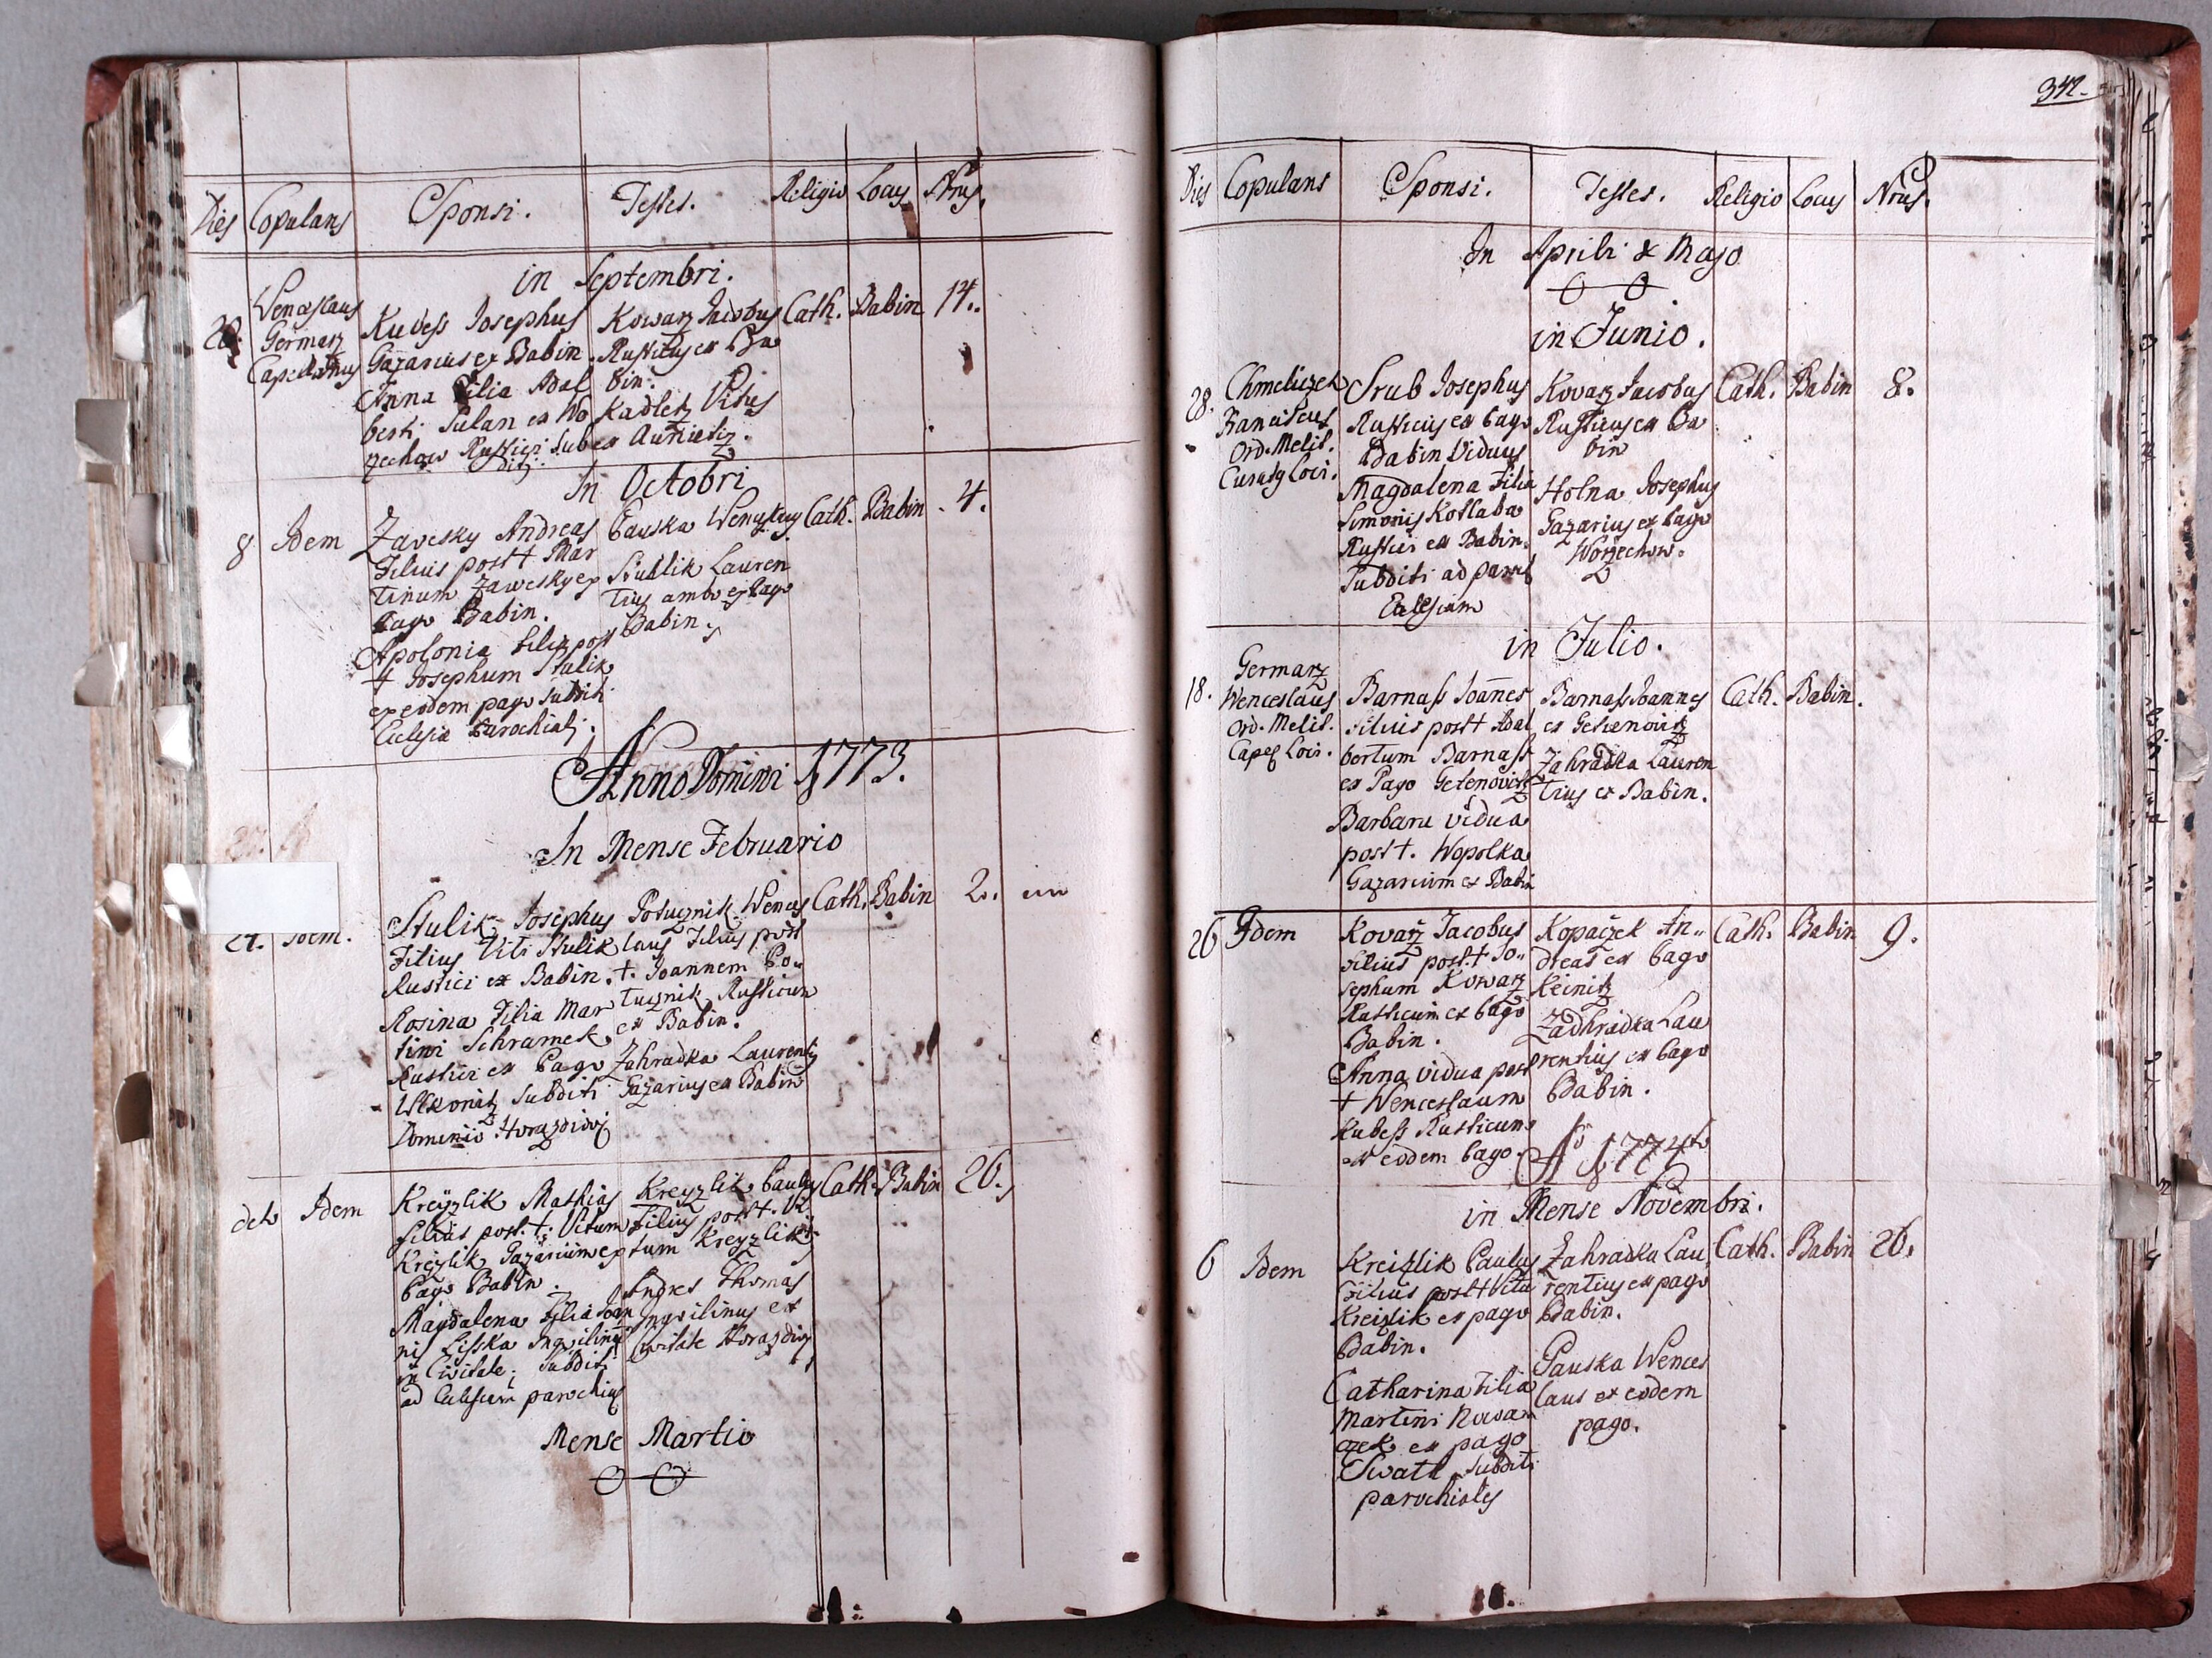 Dies Copulans Sponsi. Testes. Religio Locus Nrus.
in Septembri.
28. Wenceslaus Germarz Capellanus
Kubess Josephus
Gazarius ex Babin.
Anna Filia Adal
berti Sulan ex Wo
zechow Rustici Sub
diti.
Kowarz Jacobus
Rusticus ex Ba
bin.
Kadletz Vitus
ex
Cath. Babin 14.
In Octobri
8 Idem
Zavesky Andreas
Filius post † Mar
tinum Zawesky ex
Pago Babin.
Apolonia Filia post
† Josephum Stulik
ex eodem pago Subditi
Eclesiae Parochialis.
Pauska Wenceslaus
Stuhlik Lauren
tius ambo ex Pago
Babin.
Cath. Babin. 4.
Anno Domini 1773.
In Mense Februario
21. Idem.
Stulik Josephus
Filius Viti Stulik
Rustici ex Babin.
Rosina Filia Mar
tini Schramek
Rustici ex Pago
Subditi
Dominio Horazdiov
Potuznik Wences
laus Filius post
†. Joannem Po
tuznik Rusticum
ex Babin.
Zahradka Laurentius
Gazarius ex Babin
Cath. Babin 2.
deto Idem
Kreyzlik Mathias
filius post. †. Vitum
Kreyzlik Gazarium ex
Pago Babin.
Magdalena Filia Joan
nis Lisska Inqvilini
in Civitate; Subditi
ad Eclesiam parochial
Kreyzlik Paulus
Filius post †. Vi
tum Kreyzlik
Andres Thomas
Inqvilinus ex
Civitate Horazdiov
Cath. Babin 26.
Mense Martio
0 0
342.
Dies Copulans Sponsi. Testes. Religio Locus Nrus.
In Aprili & Majo
0 0
in Junio.
28. Chmeliczek
Franciscus
Ord. Melit.
Curatus Loci.
Srub Josephus
Rusticus ex Pago
Babin Viduus
Magdalena Filia
Simonis Kotlaba
Rustici ex Babin.
Subditi ad paroch
Eclesiam
Kovarz Jacobus
Rusticus ex Ba
bin
Holna Josephus
Gazarius ex Pago
Worzechow.
Cath. Babin 8.
in Julio.
18. Germarz
Wenceslaus
Ord. Melit.
Capel Loci.
Barnass Joannes
Filius post † Adal
bertum Barnass
ex Pago Getenowitz
Barbara vidua
post †. Wopolka
Gazarium ex Babin
Barnass Joannes
ex Getenowitz
Zahradka Lauren
tius ex Babin.
Cath. Babin.
26 Idem
Kovarz Jacobus
filius post. † Jo
sephum Kowarz
Rusticum ex Pago
Babin.
Anna vidua post
† Wenceslaum
Kubess Rusticum
ex eodem Pago.
Kopaczek An
dreas ex Pago
Keinitz
Zadhradka Lau
rentius ex Pago
Babin.
Cath. Babin 9.
Ao 1774to
in Mense Novembri.
6 Idem
Kreizlik Paulus
Filius post † Vitu
Kreizlik ex pago
Babin.
Catharina Filia
Martini Nowa
czek ex pago
Swatl Subditi
parochiales
Zahradka Lau
rentius ex pago
Babin.
Pauska Wences
laus ex eodem
pago.
Cath. Babin 26.